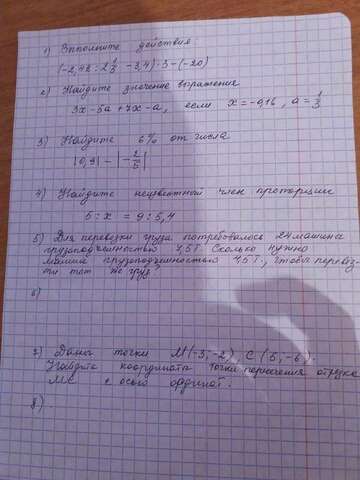 1) Выполните действия:
(-2,48 : 2 1/3 - 3,4) · 3 - (-20)
2) Найдите значение выражения
3x - 5a + 7x - a, если x = -0,16, a = 1/3
3) Найдите 6% от числа
|0,9| - |-2/5|
4) Найдите неизвестный член пропорции
5 : x = 9 : 5,4
5) Для перевозки груза потребовалось 24 машина
грузоподъемностью 7,5 т. Сколько нужно
машин грузоподъемностью 4,5 т., чтобы перевез-
ти тот же груз?
6)
7) Даны точки M(-3;-2), C(5;-6).
Найдите координаты точки пересечения отрезка
MC с осью ординат.
8)